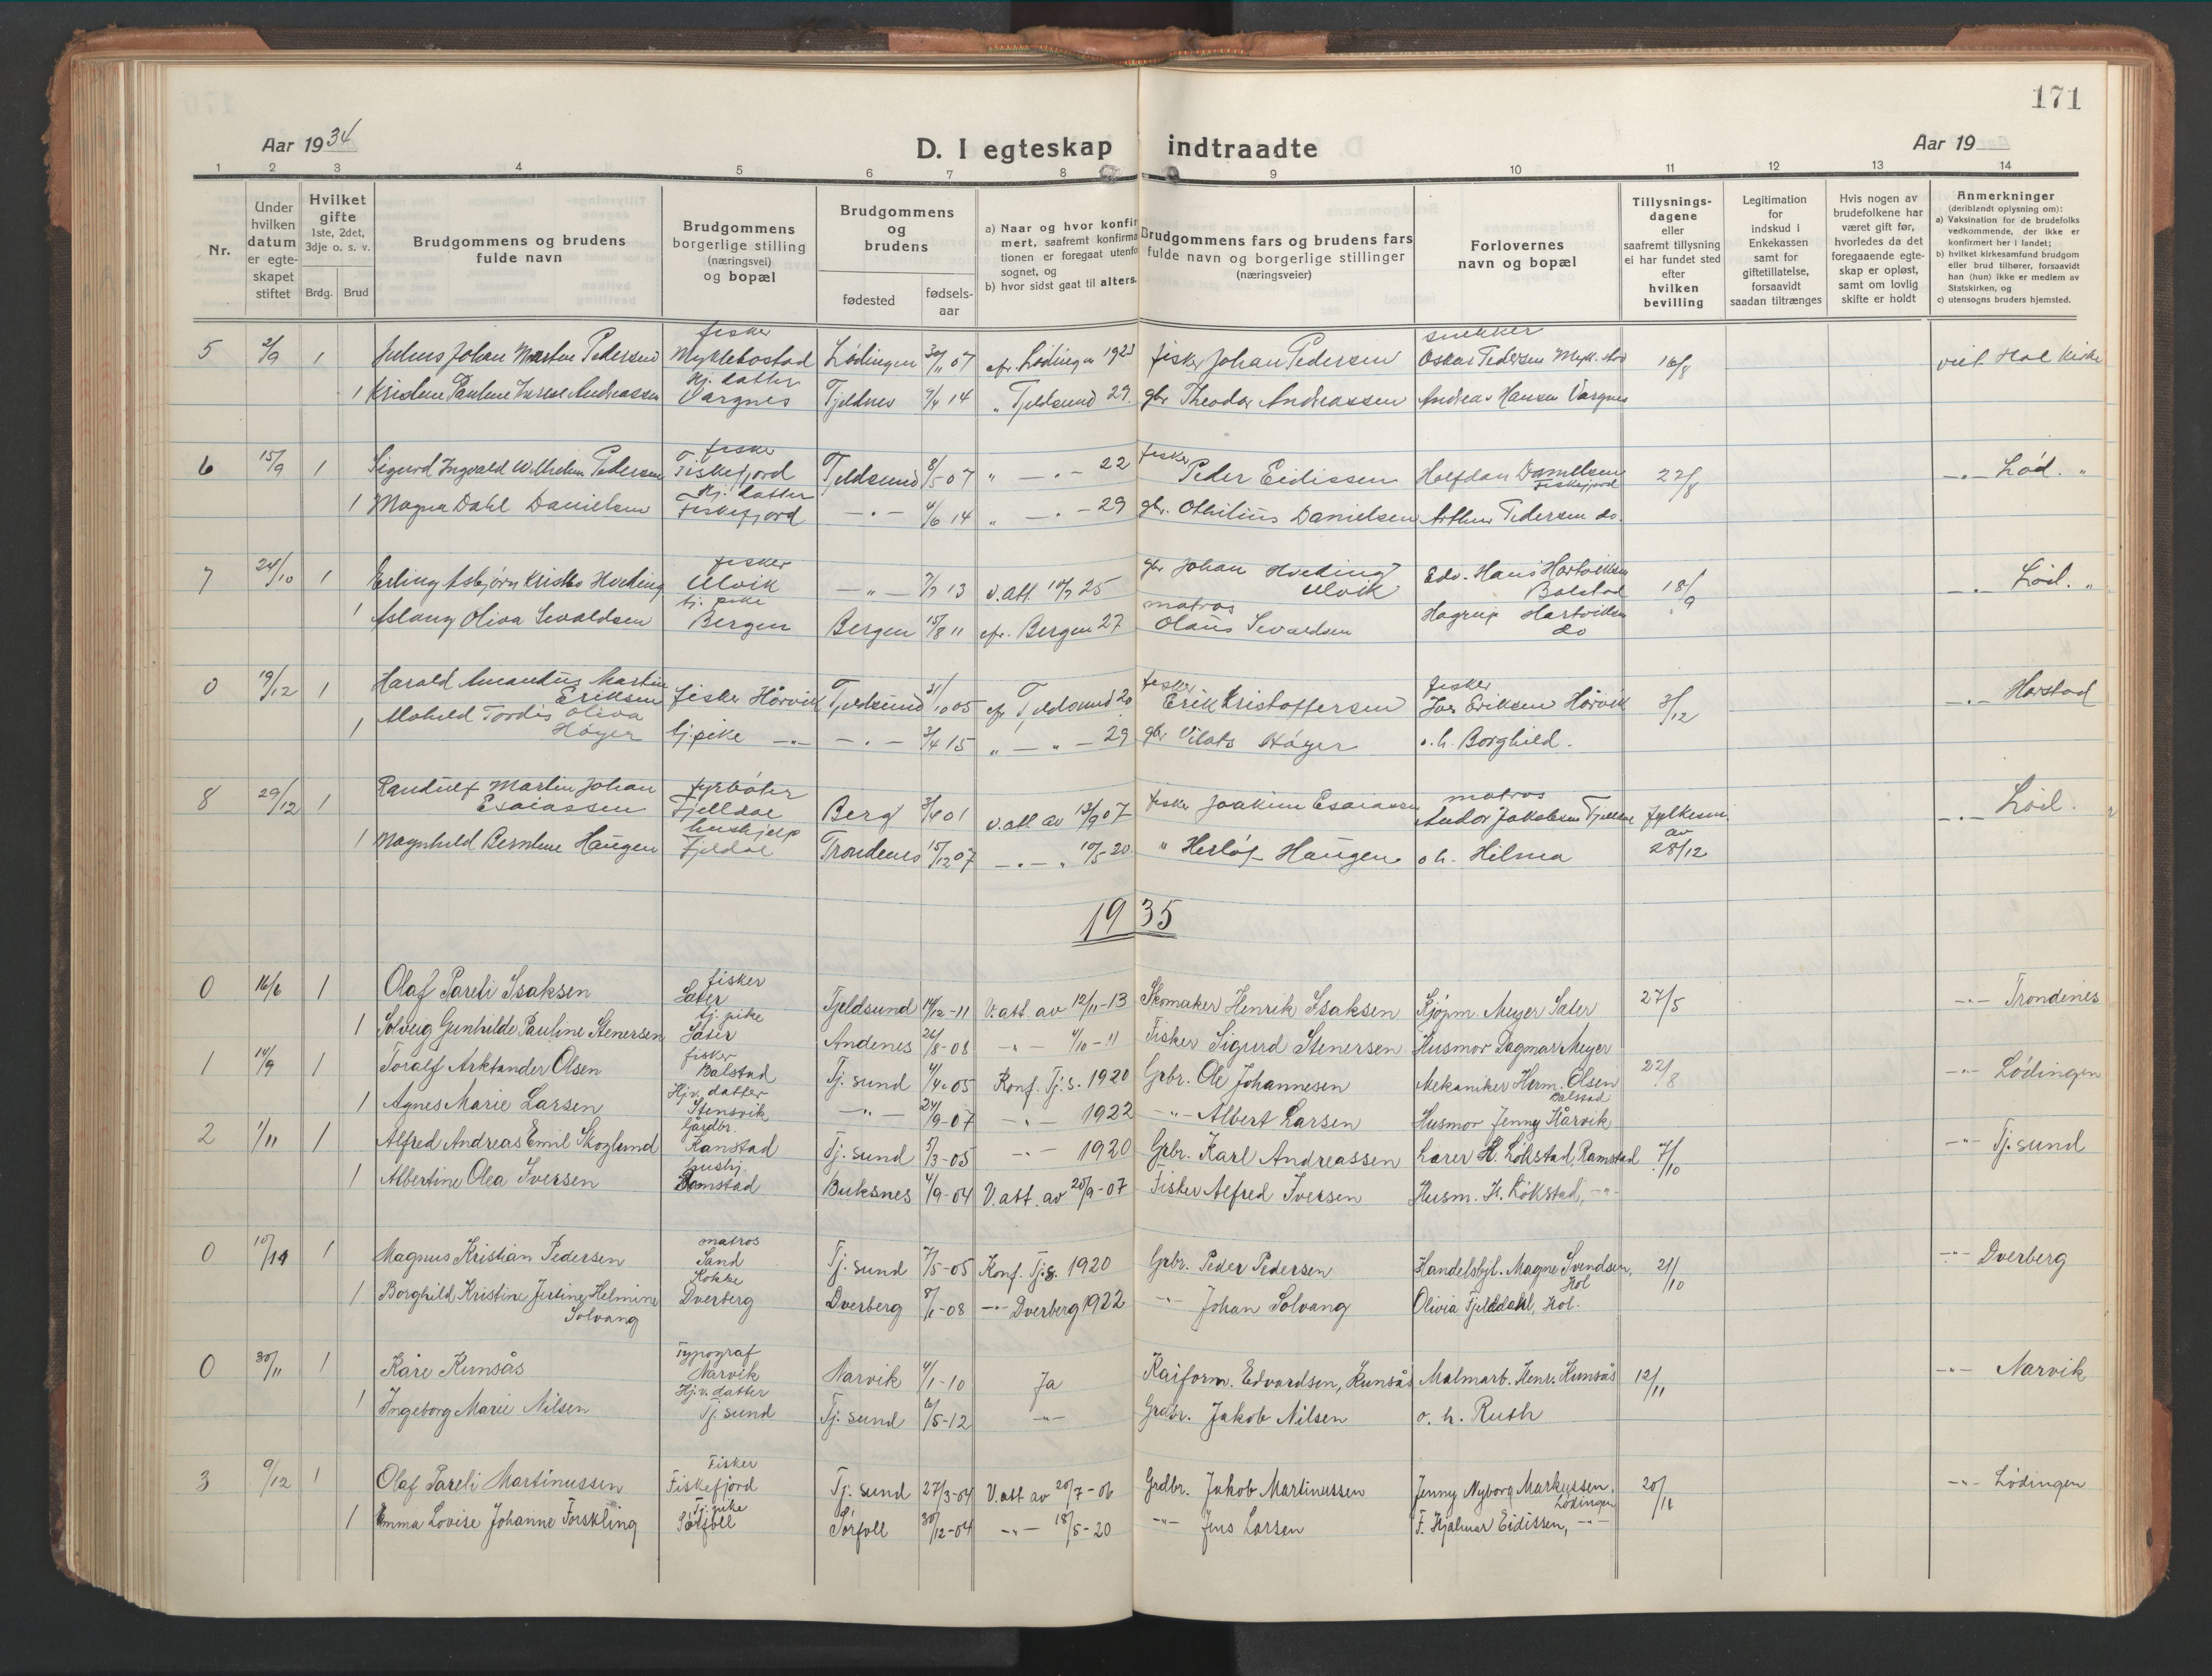 171
Aar 1934
D. I egteskap indtraadte
Aar 19
1 2 3 4 5 6 7 8 9 10 11 12 13 14
Nr.
Under hvilken datum er egteskapet stiftet
Hvilket gifte 1ste, 2det, 3dje o. s. v.
Brdg. Brud
Brudgommens og brudens fulde navn
Brudgommens borgerlige stilling (næringsvei) og bopæl
Brudgommens og brudens
fødested
fødsels-aar
a) Naar og hvor konfirmert, saafremt konfirmationen er foregaat utenfor sognet, og
b) hvor sidst gaat til alters.
Brudgommens fars og brudens fars fulde navn og borgerlige stillinger (næringsveier)
Forlovernes navn og bopæl
Tillysnings-dagene eller saafremt tillysning ei har fundet sted efter hvilken bevilling
Legitimation for indskud i Enkekassen samt for giftetillatelse, forsaavidt saadan tiltrænges
Hvis nogen av brudefolkene har været gift før, hvorledes da det foregaaende egteskap er opløst, samt om lovlig skifte er holdt
Anmerkninger
(deriblandt oplysning om):
a) Vaksination for de brudefolks vedkommende, der ikke er konfirmert her i landet;
b) hvilket kirkesamfund brudgom eller brud tilhører, forsaavidt han (hun) ikke er medlem av Statskirken, og
c) utensogns bruders hjemsted.
5 2/9 1 Julius Johan Martin Pedersen fisker Myklebostad Lødingen 30/11 07 efr. Lødingen 1923 fisker Johan Pedersen snekker Oskar Pedersen Mykl.stad 16/8 viet Hol Kirke
1 Kristine Pauline Therese Andreassen Hj. datter Vargnes Tjeldnes 9/4 14 " Tjeldsund 29. gbr Theodor Andreassen Andreas Hansen Vargnes
6 15/9 1 Sigurd Ingvald Wilhelm Pedersen fisker Fiskefjord Tjeldsund 8/5 07 " — " — 22 fisker Peder Eidissen Halfdan Danielsen Fiskefjord 22/8 — " — Lød. "
1 Magna Dahl Danielsen Hj. datter Fiskefjord — " — 4/6 14 " — " — 29 gbr. Othilius Danielsen Arthur Pedersen do.
7 24/10 1 Erling Asbjørn Kristian Hveding fisker Ulvik — " — 7/7 13 v. att. 10/7 25 gbr Johan Hveding Ulvik Edv. Hans Hartviksen Balstad 18/9 — " — Lød. "
1 Aslaug Oliva Sevaldsen tj. pike Bergen Bergen 15/8 11 efr. Bergen 27 matros Olaus Sevaldsen Hagrup Hartviksen do
0 19/12 1 Harald Amandus Martin Eriksen fisker Hårvik Tjeldsund 31/10 05 efr Tjeldsund 20 fisker Erik Kristoffersen fisker Ivar Eriksen Hårvik 3/12 — " — Harstad
1 Tordis Oliva Høyer tj. pike — " — — " — 3/4 15 " — " — 29 gbr Vilats Høyer o. h. Borghild.
8 29/12 1 Randulf Martin Johan Esaiassen fyrbøter Fjelldae Berg 3/4 01 v. att. av 13/9 07 fisker Joakim Esaiassen matros Andor Jakobsen fylkesm. av 28/12 — " — Lød.
1 Magnhild Berntine Haugen hushjelp Fjeldal Trondenes 15/12 07 — " — 10/5 20. " Herlof Haugen o h. Hilma
1935
0 16/6 1 Olaf Pareli Isaksen fisker Sater Tjeldsund 14/12-11 V. att. av 12/11-13 Skomaker Henrik Isaksen Kjøpm. Meyer Sater 27/5 — " — Trondenes
1 Solveig Gunhilde Pauline Stenersen tj. pike Sater Andenes 26/8-08 — " — 4/10-11 Fisker Sigurd Stenersen Husmor Dagmar Meyer
1 14/9 1 Toralf Arktander Olsen fisker Balstad Tj. sund 4/4-05 Konf. Tj.s. 1920 Grbr. Ole Johannesen Mekaniker Herm. Olsen Balstad 22/8 — " — Lødingen
1 Agnes Marie Larsen Hj.v. datter Stensvik — " — 24/9-07 — " — 1922 — " — Albert Larsen Husmor Jenny Hårvik
2 1/11 1 Alfred Andreas Emil Skoglund Gårdbr. Ramstad Tj. sund 5/3-05 — " — 1920 Grbr. Karl Andreassen Lærer H. Løkstad, Ramstad 7/10 — " — Tj. sund
1 Albertine Olea Iversen Hushj. Ramstad Buksnes 4/9-04 V. att. av 20/9-07 Fisker Alfred Iversen Husm. H. Løkstad, — " —
0 10/11 1 Magnus Kristian Pedersen matros Sand Tj. sund 7/5-05 Konf. Tj.s. 1920 Grbr. Peder Pedersen Handelsbtj. Magne Svendsen, Hol 21/10 — " — Dverberg
1 Borghild Kristine Jertine Helmine Solvang Kokke Dverberg Dverberg 8/1-08 — " — Dverberg 1922 — " — Johan Solvang Olivia Fjelddahl, Hol.
0 30/11 1 Kåre Kunsås Typograf Narvik Narvik 4/1-10 Ja Kaiform. Edvardsen, Kunsås Malmarb. Henr. Kunsås 12/11 — " — Narvik
1 Ingeborg Marie Nilsen Hj.v. datter Tj. sund Tj. sund 6/5-12 — " — Grdbr. Jakob Nilsen o. h. Ruth
3 9/12 1 Olaf Pareli Martinussen Fisker Fiskefjord Tj. sund 27/3-04 V. att av 20/7-06 Grdbr. Jakob Martinussen Jenny Nyborg Markussen, Lødingen 20/11 — " — Lødingen
1 Emma Lovise Johanne Forskling Tj. pike Sørfoll Sørfoll 30/12-04 — " — 18/5-20 — " — Jens Larsen F. Hjalmar Eidissen, — " —